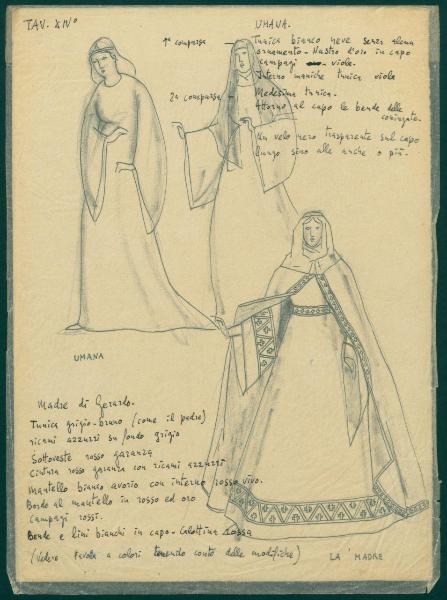 TAV. XIVº
UMANA.
Tunica bianco neve senza alcun
ornamento - Nastro d'oro in capo
campagi viola.
Interno maniche tunica viola
1ª comparsa
2ª comparsa
Medesima tunica.
Attorno al capo le bende delle
coniugate.
Un velo nero trasparente sul capo
lungo sino alle anche o più.
UMANA
Madre di Gerardo.
Tunica grigio-bruno (come il padre)
ricami azzurri su fondo grigio
Sottoveste rosso garanza
Cintura rosso garanza con ricami azzurri
Mantello bianco avorio con interno rosso vivo.
Bordo al mantello in rosso ed oro
Campagi rossi.
Bende e lini bianchi in capo - Calottina rossa
(Vedere tavola a colori tenendo conto delle modifiche)
LA MADRE